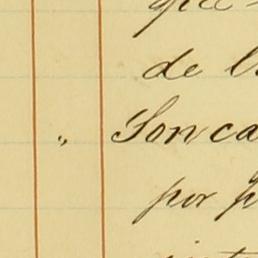 que
de l
„ Son ca
por p